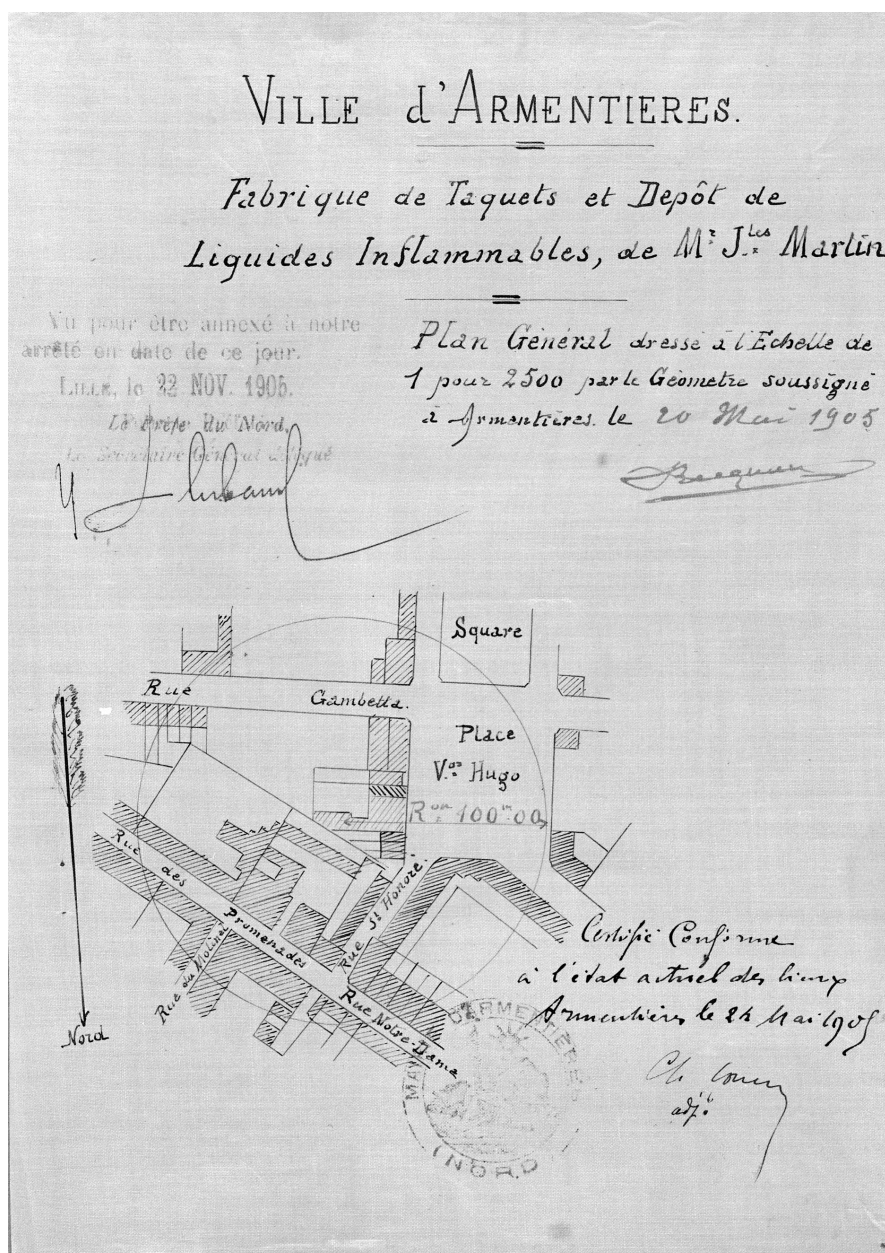 VILLE d'ARMENTIERES.
Fabrique de Taquets et Depôt de
Liquides Inflammables, de Mr. J.les Martin
Vu pour être annexé à notre
arrêté en date de ce jour.
LILLE, le 22 NOV. 1905.
Le Préfet du Nord,
Le Secrétaire Général délégué
Plan Général dressé à l'Echelle de
1 pour 2500 par le Géometre soussigné
à Armentières. le 20 Mai 1905
Square
Rue Gambetta.
Place
V.or Hugo
R.on 100m.00
Rue des Promenades
Rue St Honoré.
Rue du Molinel
Rue Notre-Dame
Nord
Certifié Conforme
à l'état actuel des lieux
Armentières le 24 Mai 1905
adj.t
MAIRIE D'ARMENTIÈRES
(NORD)